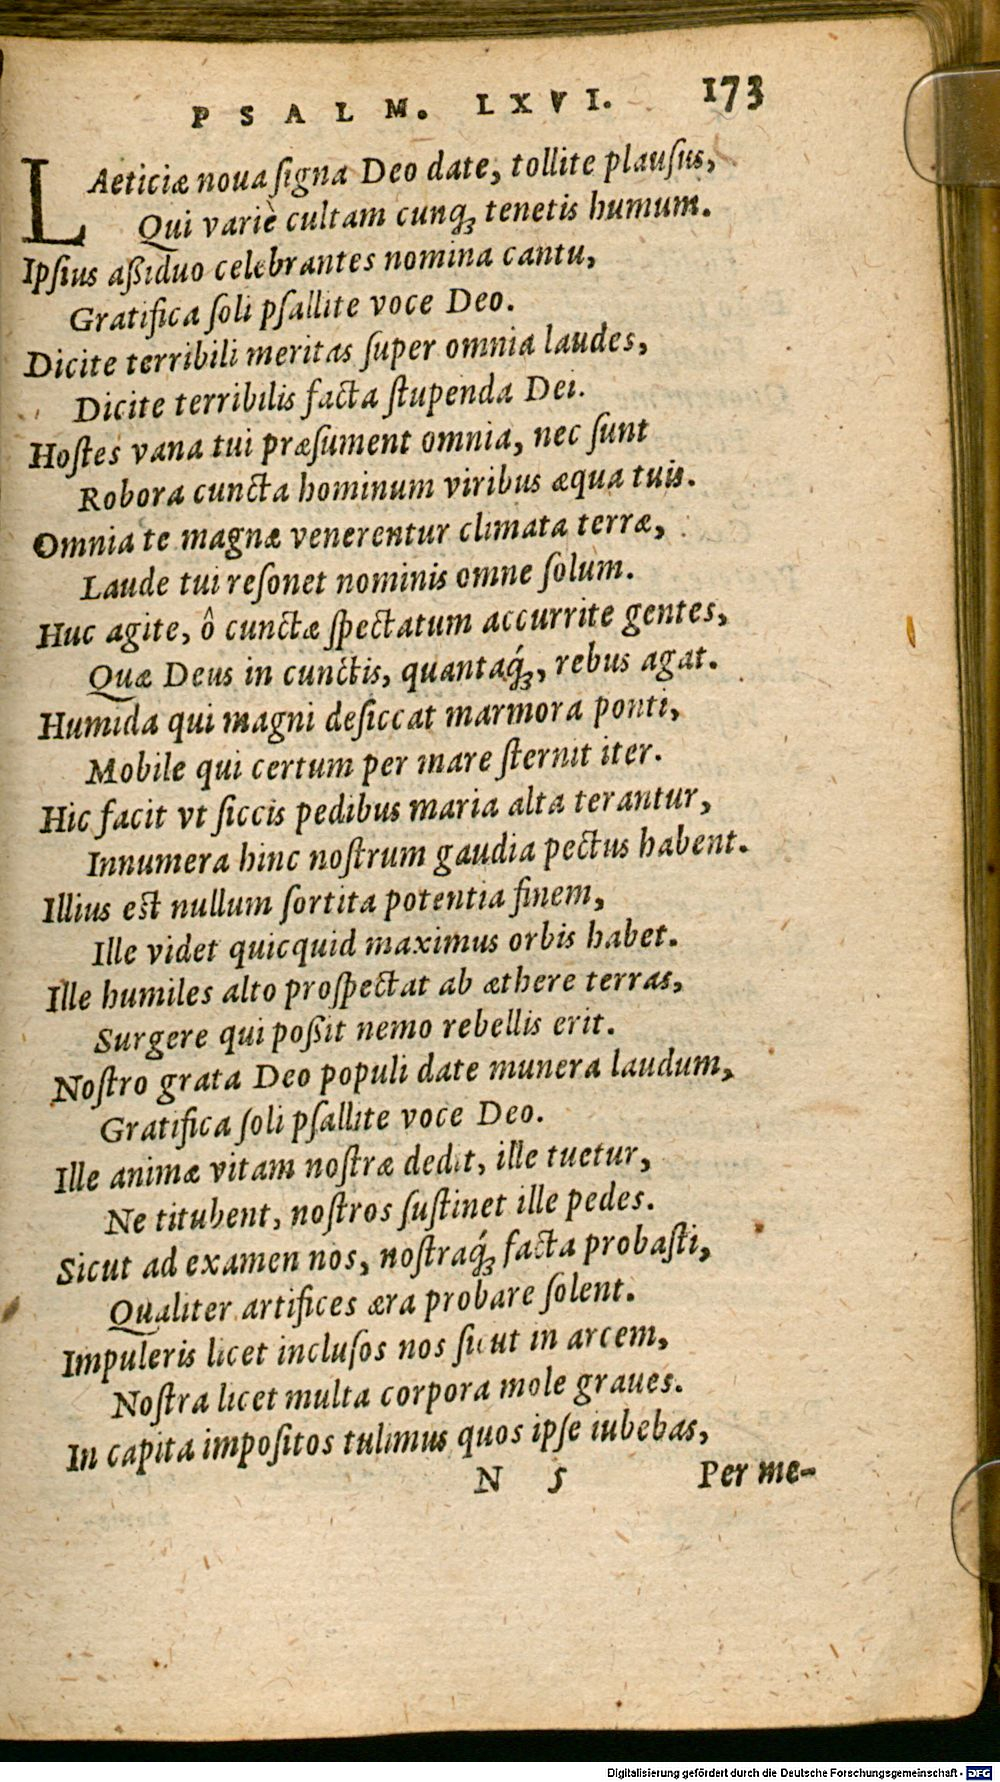 PSALM. LXVI. 173
LAeticiæ noua ſigna Deo date, tollite plauſus,
Qui variè cultam cunq́; tenetis humum.
Ipſius aßiduo celebrantes nomina cantu,
Gratifica ſoli pſallite voce Deo.
Dicite terribili meritas ſuper omnia laudes,
Dicite terribilis facta ſtupenda Dei.
Hoſtes vana tui præſument omnia, nec ſunt
Robora cuncta hominum viribus æqua tuis.
Omnia te magnæ venerentur climata terræ,
Laude tui reſonet nominis omne ſolum.
Huc agite, ô cunctæ ſpectatum accurrite gentes,
Quæ Deus in cunctis, quantaq́;, rebus agat.
Humida qui magni deſiccat marmora ponti,
Mobile qui certum per mare ſternit iter.
Hic facit vt ſiccis pedibus maria alta terantur,
Innumera hinc noſtrum gaudia pectus habent.
Illius eſt nullum ſortita potentia finem,
Ille videt quicquid maximus orbis habet.
Ille humiles alto proſpectat ab æthere terras,
Surgere qui poßit nemo rebellis erit.
Noſtro grata Deo populi date munera laudum,
Gratifica ſoli pſallite voce Deo.
Ille animæ vitam noſtræ dedit, ille tuetur,
Ne titubent, noſtros ſuſtinet ille pedes.
Sicut ad examen nos, noſtraq́; facta probaſti,
Qualiter artifices æra probare ſolent.
Impuleris licet incluſos nos ſicut in arcem,
Noſtra licet multa corpora mole graues.
In capita impoſitos tulimus quos ipſe iubebas,
N 5 Per me-
Digitalisierung gefördert durch die Deutsche Forschungsgemeinschaft - DFG